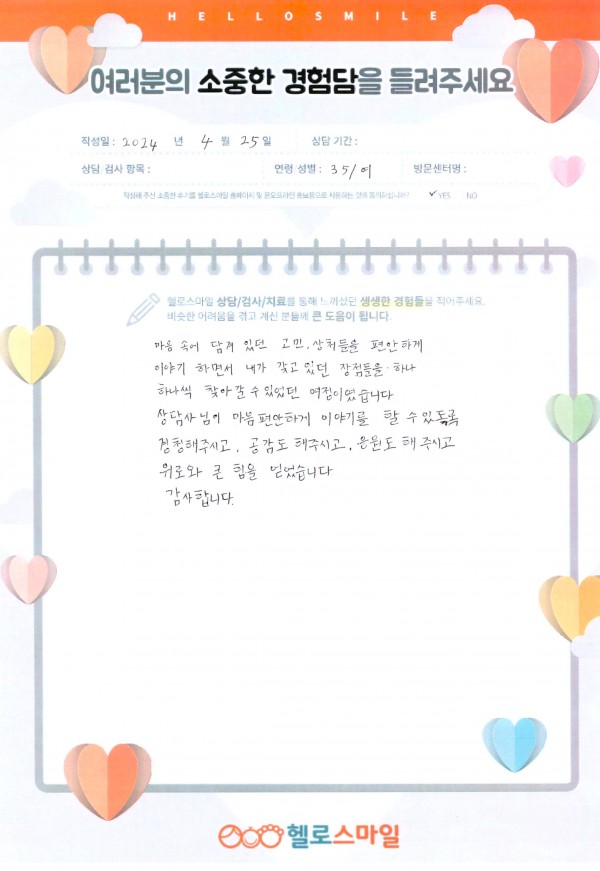 HELLOSMILE
여러분의 소중한 경험담을 들려주세요
작성일 : 2024 년 4 월 25일 상담 기간 :
상담 검사 항목 : 연령 성별 : 35/여 방문센터명 :
작성해 주신 소중한 후기를 헬로스마일 홈페이지 및 온오프라인 홍보용으로 사용하는 것에 동의하십니까? ✓YES NO
헬로스마일 상담/검사/치료를 통해 느끼셨던 생생한 경험들을 적어주세요.
비슷한 어려움을 겪고 계신 분들께 큰 도움이 됩니다.
마음 속에 담겨 있던 고민, 상처들을 편안하게
이야기 하면서 내가 갖고 있던 장점들을 하나
하나씩 찾아갈 수 있었던 여정이였습니다
상담사님이 마음 편안하게 이야기를 할 수 있도록
경청해주시고, 공감도 해주시고, 응원도 해 주시고
위로와 큰 힘을 얻었습니다
감사합니다.
헬로스마일